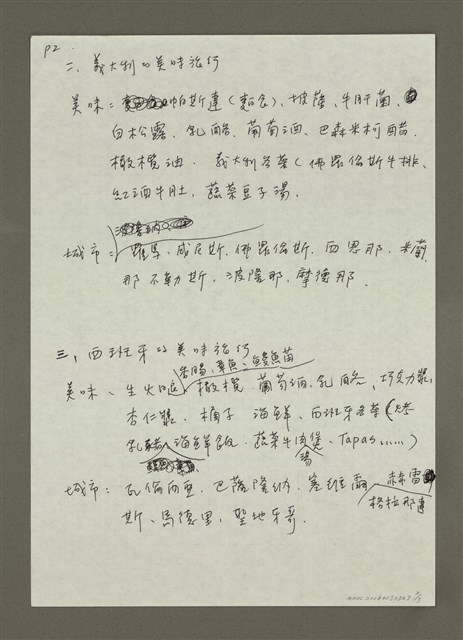 P2.
二、義大利的美味旅行
美味：帕斯達(麵食)、披薩、牛肝菌、
白松露、乳酪、葡萄酒、巴森米柯醋、
橄欖油、義大利名菜(佛羅倫斯牛排、
紅酒牛肚、蔬菜豆子湯。
城市：羅馬、威尼斯、佛羅倫斯、西恩那、米蘭、
那不勒斯、波隆那、摩德那、
三、西班牙的美味旅行
香腸、章魚、鰻魚苗
美味、生火腿、橄欖、葡萄酒、乳酪、巧克力
杏仁糖、橘子、海鮮、西班牙名菜(烤
乳豬、海鮮飯、蔬菜牛肉湯煲、Tapas……)
城市：瓦倫西亞、巴薩隆納、塞維爾、赫雷
斯、馬德里、聖地牙哥、格拉那達